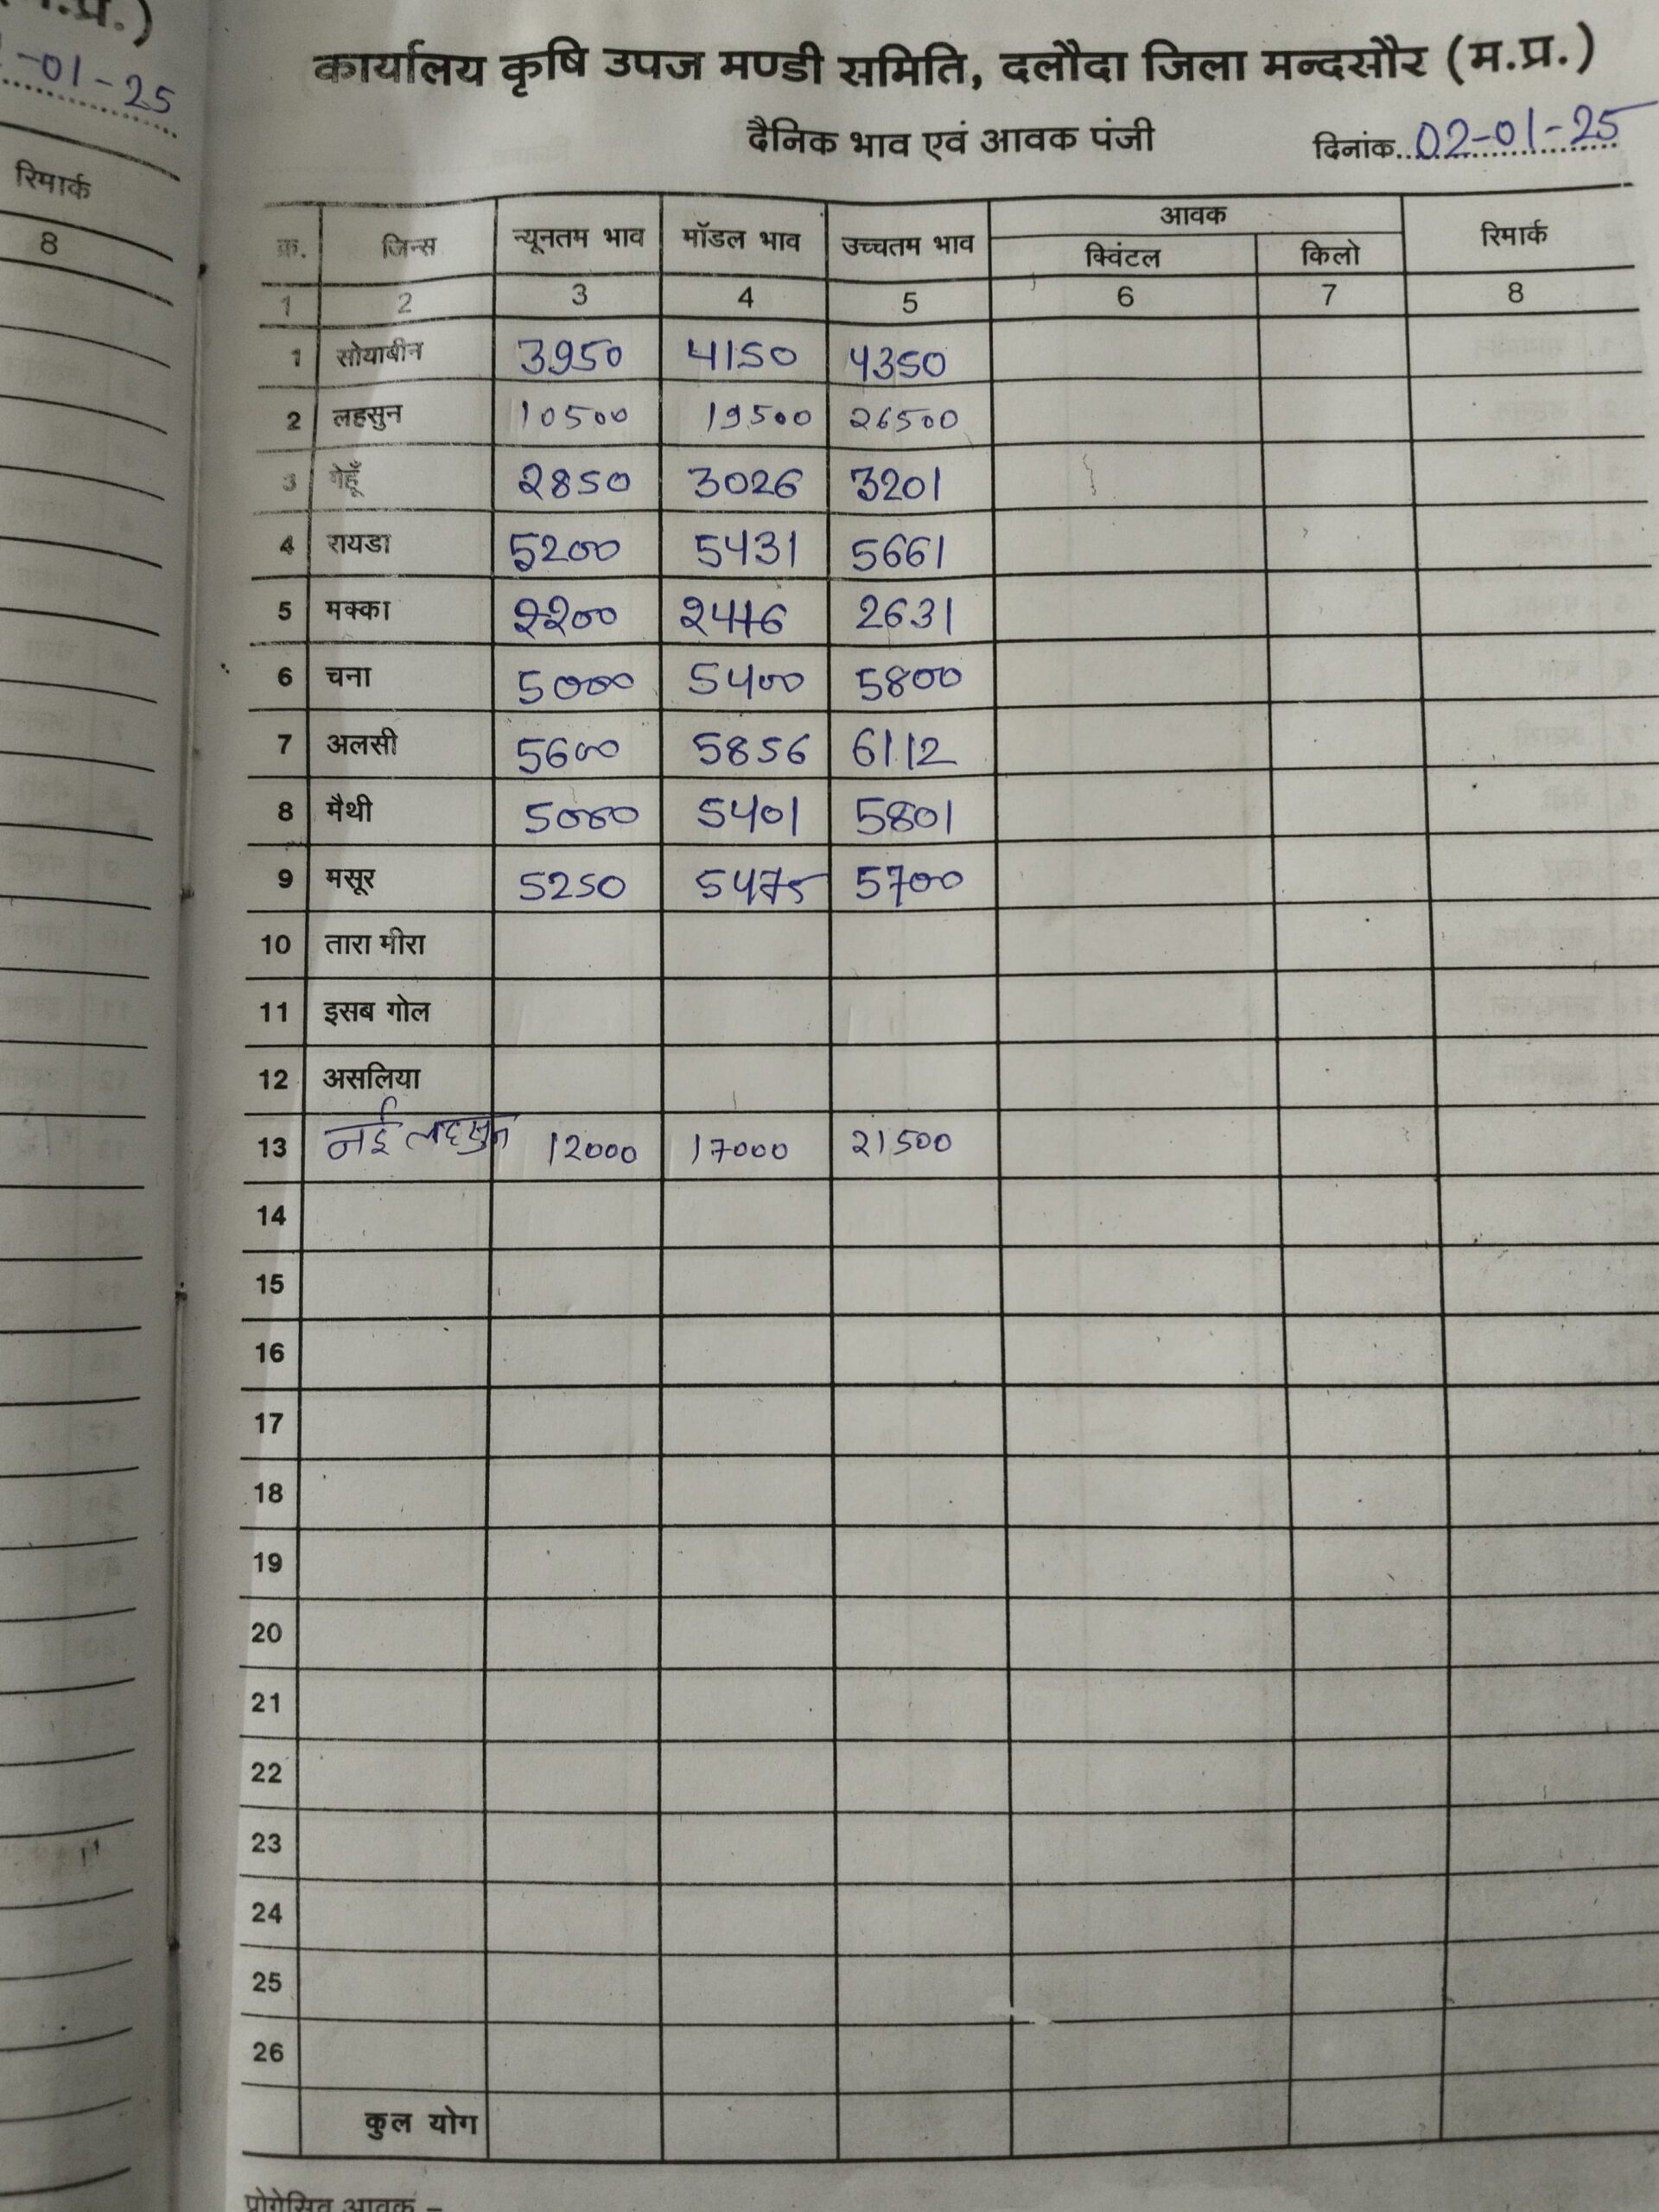 -01-25
रिमार्क
8
कार्यालय कृषि उपज मण्डी समिति, दलौदा जिला मन्दसौर (म.प्र.)
दैनिक भाव एवं आवक पंजी दिनांक 02-01-25
क्र. जिन्स न्यूनतम भाव मॉडल भाव उच्चतम भाव आवक रिमार्क
क्विंटल किलो
1 2 3 4 5 6 7 8
1 सोयाबीन 3950 4150 4350
2 लहसुन 10500 19500 26500
3 गेहूँ 2850 3026 3201
4 रायडा 5200 5431 5661
5 मक्का 2200 2416 2631
6 चना 5000 5400 5800
7 अलसी 5600 5856 6112
8 मैथी 5000 5401 5801
9 मसूर 5250 5475 5700
10 तारा मीरा
11 इसब गोल
12 असलिया
13 नई लहसुन 12000 17000 21500
14
15
16
17
18
19
20
21
22
23
24
25
26
कुल योग
प्रोगेसिव आवक –